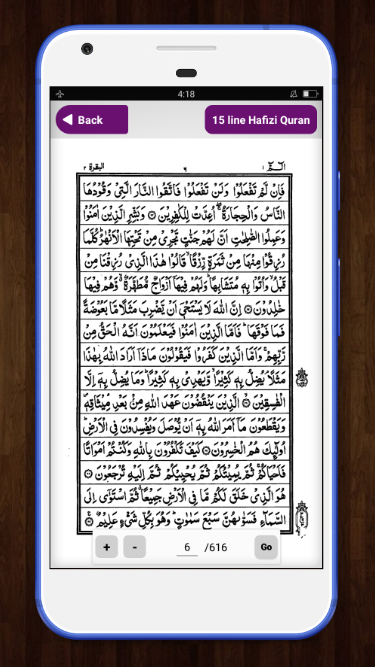 4:18
Back
15 line Hafizi Quran
البقرة ٢
٦
الٓمّٓ ١
فَاِنْ لَّمْ تَفْعَلُوْا وَلَنْ تَفْعَلُوْا فَاتَّقُوا النَّارَ الَّتِیْ وَقُوْدُهَا
النَّاسُ وَالْحِجَارَةُ ۖۚ اُعِدَّتْ لِلْكٰفِرِیْنَ ۞ وَبَشِّرِ الَّذِیْنَ اٰمَنُوْا
وَعَمِلُوا الصّٰلِحٰتِ اَنَّ لَهُمْ جَنّٰتٍ تَجْرِیْ مِنْ تَحْتِهَا الْاَنْهٰرُ ؕ كُلَّمَا
رُزِقُوْا مِنْهَا مِنْ ثَمَرَةٍ رِّزْقًا ۙ قَالُوْا هٰذَا الَّذِیْ رُزِقْنَا مِنْ
قَبْلُ ۙ وَاُتُوْا بِهٖ مُتَشَابِهًا ؕ وَلَهُمْ فِیْهَاۤ اَزْوَاجٌ مُّطَهَّرَةٌ ۙۗ وَّهُمْ فِیْهَا
خٰلِدُوْنَ ۞ اِنَّ اللّٰهَ لَا یَسْتَحْیٖۤ اَنْ یَّضْرِبَ مَثَلًا مَّا بَعُوْضَةً
فَمَا فَوْقَهَا ؕ فَاَمَّا الَّذِیْنَ اٰمَنُوْا فَیَعْلَمُوْنَ اَنَّهُ الْحَقُّ مِنْ
رَّبِّهِمْ ۚ وَاَمَّا الَّذِیْنَ كَفَرُوْا فَیَقُوْلُوْنَ مَاذَاۤ اَرَادَ اللّٰهُ بِهٰذَا
مَثَلًا ۘ یُضِلُّ بِهٖ كَثِیْرًا ۙ وَّیَهْدِیْ بِهٖ كَثِیْرًا ؕ وَمَا یُضِلُّ بِهٖۤ اِلَّا
الْفٰسِقِیْنَ ۞ الَّذِیْنَ یَنْقُضُوْنَ عَهْدَ اللّٰهِ مِنْۢ بَعْدِ مِیْثَاقِهٖ ۪
وَیَقْطَعُوْنَ مَاۤ اَمَرَ اللّٰهُ بِهٖۤ اَنْ یُّوْصَلَ وَیُفْسِدُوْنَ فِی الْاَرْضِ ؕ
اُولٰٓىِٕكَ هُمُ الْخٰسِرُوْنَ ۞ كَیْفَ تَكْفُرُوْنَ بِاللّٰهِ وَكُنْتُمْ اَمْوَاتًا
فَاَحْیَاكُمْ ۚ ثُمَّ یُمِیْتُكُمْ ثُمَّ یُحْیِیْكُمْ ثُمَّ اِلَیْهِ تُرْجَعُوْنَ ۞
هُوَ الَّذِیْ خَلَقَ لَكُمْ مَّا فِی الْاَرْضِ جَمِیْعًا ۗ ثُمَّ اسْتَوٰۤی اِلَی
السَّمَآءِ فَسَوّٰىهُنَّ سَبْعَ سَمٰوٰتٍ ؕ وَهُوَ بِكُلِّ شَیْءٍ عَلِیْمٌ ۞
+ - 6 /616 Go